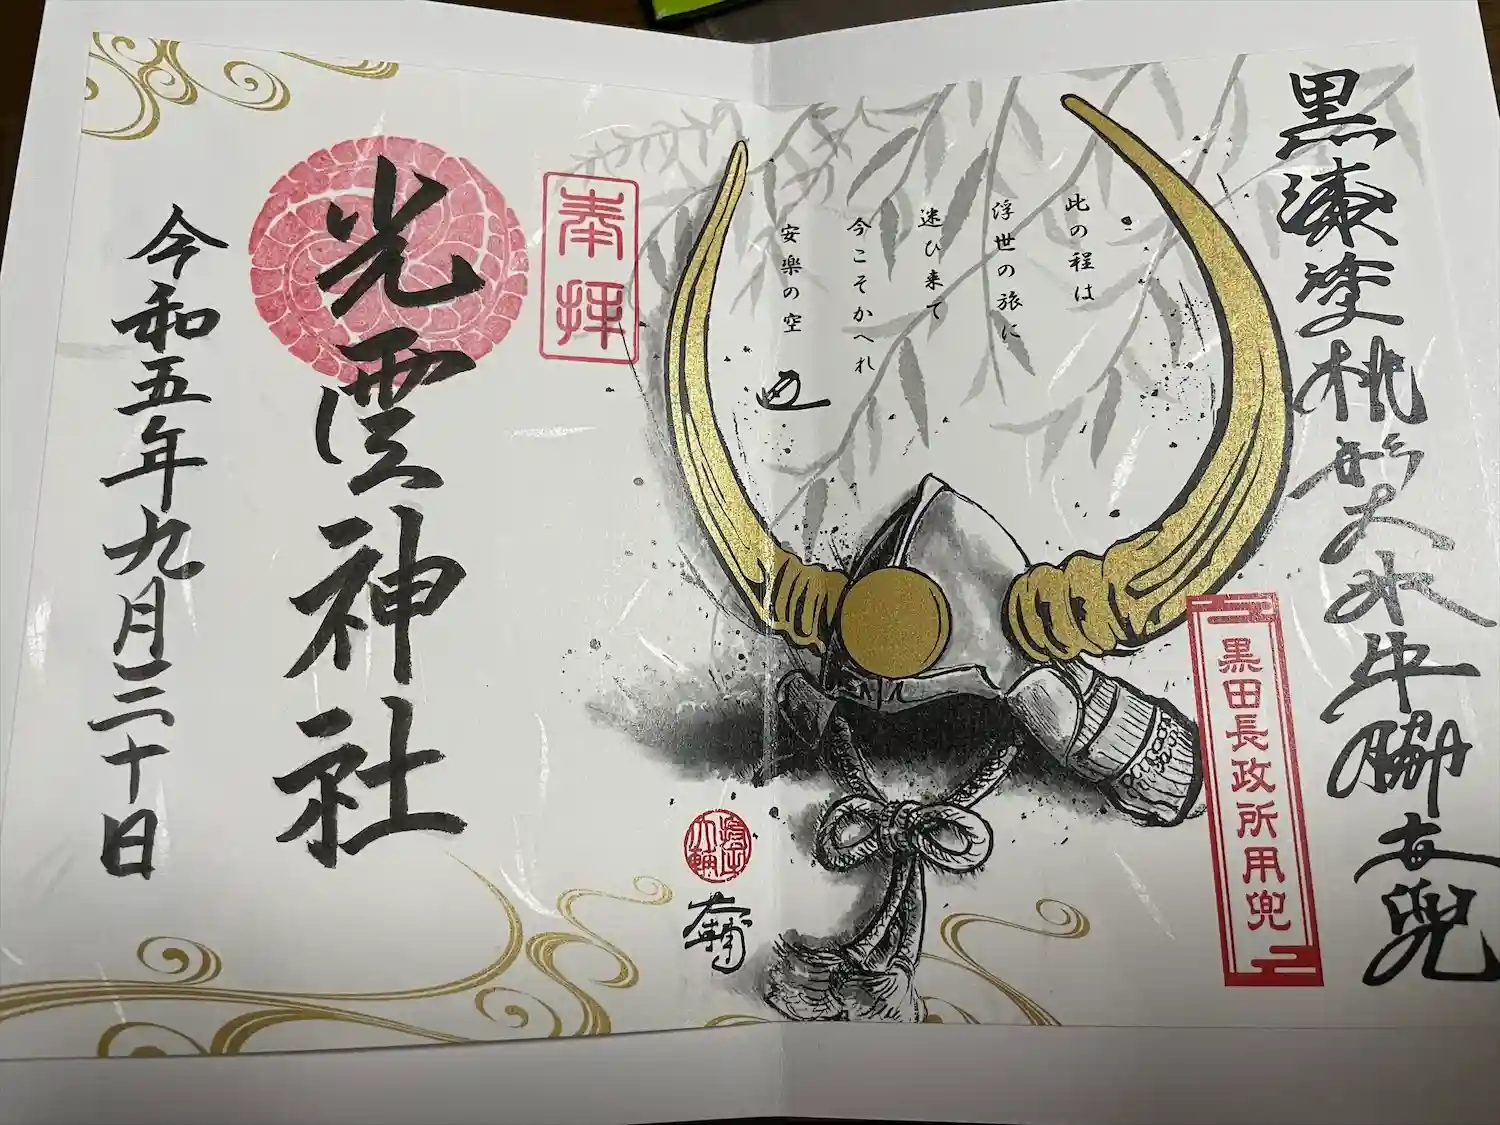 黒漆塗桃形大水牛脇立兜
黒田長政所用兜
此の程は
浮世の旅に
迷ひ来て
今こそかへれ
安楽の空
奉拝
光雲神社
令和五年九月二十日